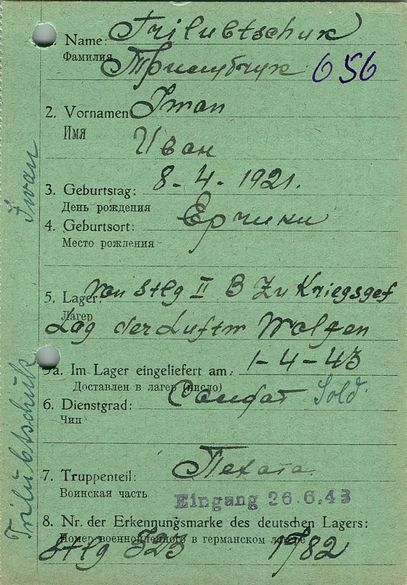 Name: Trilubtschuk
Фамилия Трилубчук 656
2. Vornamen Iwan
Имя Иван
3. Geburtstag: 8-4-1921.
День рождения
4. Geburtsort: Ерчики
Место рождения
5. Lager: Von Stlg II B Zu Kriegsgef
Лагер
Lag der Luftw Wolgen
5a. Im Lager eingeliefert am: 1-4-43
Доставлен в лагер (число)
6. Dienstgrad: Солдат Sold
Чин
7. Truppenteil: Пехота
Воинская часть Eingang 26.6.43
8. Nr. der Erkennungsmarke des deutschen Lagers:
Номер военнопленного в германском лагере
Stlg 1982
Trilubtschuk Iwan